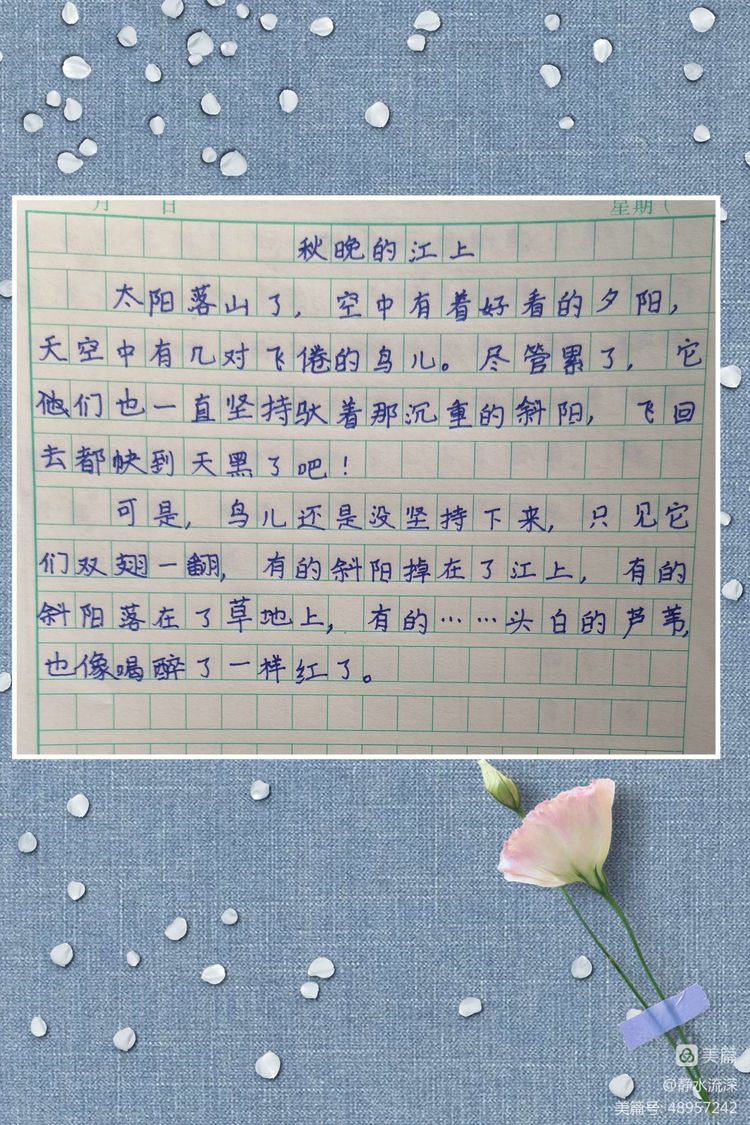 月 日 星期(
秋晚的江上
太阳落山了，空中有着好看的夕阳，
天空中有几对飞倦的鸟儿。尽管累了，它
他们也一直坚持驮着那沉重的斜阳，飞回
去都快到天黑了吧！
可是，鸟儿还是没坚持下来，只见它
们双翅一翻，有的斜阳掉在了江上，有的
斜阳落在了草地上，有的……头白的芦苇，
也像喝醉了一样红了。
美篇
@静水流深
美篇号: 48957242